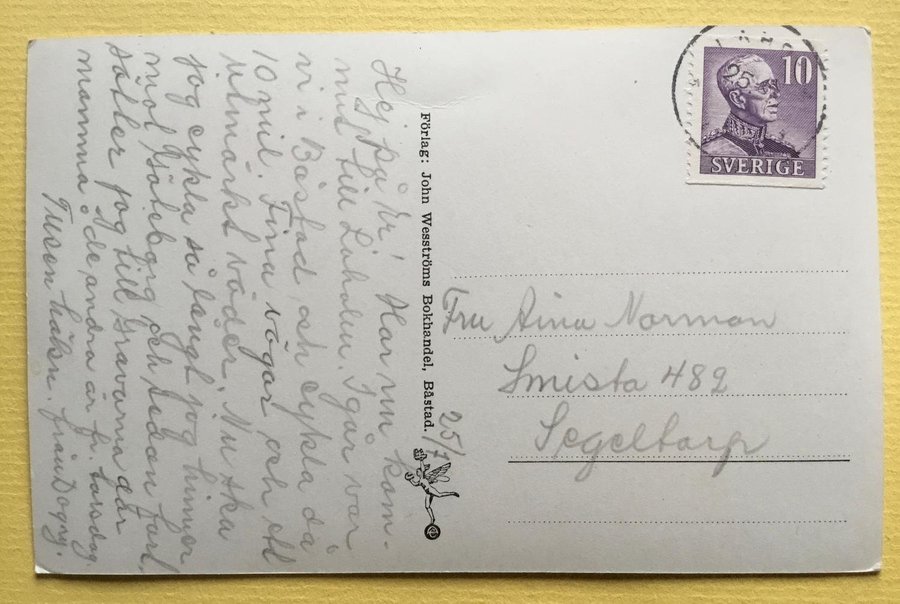 Hej på Er! Har nu kom-
mit till Laholm. Igår var
vi i Båstad och cykla då
10 mil. Fina vägar och ett
utmärkt väder. Nu ska
jag cykla så långt jag hinner
mot Göteborg och sedan fort-
sätter jag till Gravarna där
mamma o de andra är fr. torsdag.
Tusen hälsn. från
Förlag: John Wesströms Bokhandel, Båstad.
25/7
10
SVERIGE
25
Fru Aina Norman
Smista 482
Segeltorp